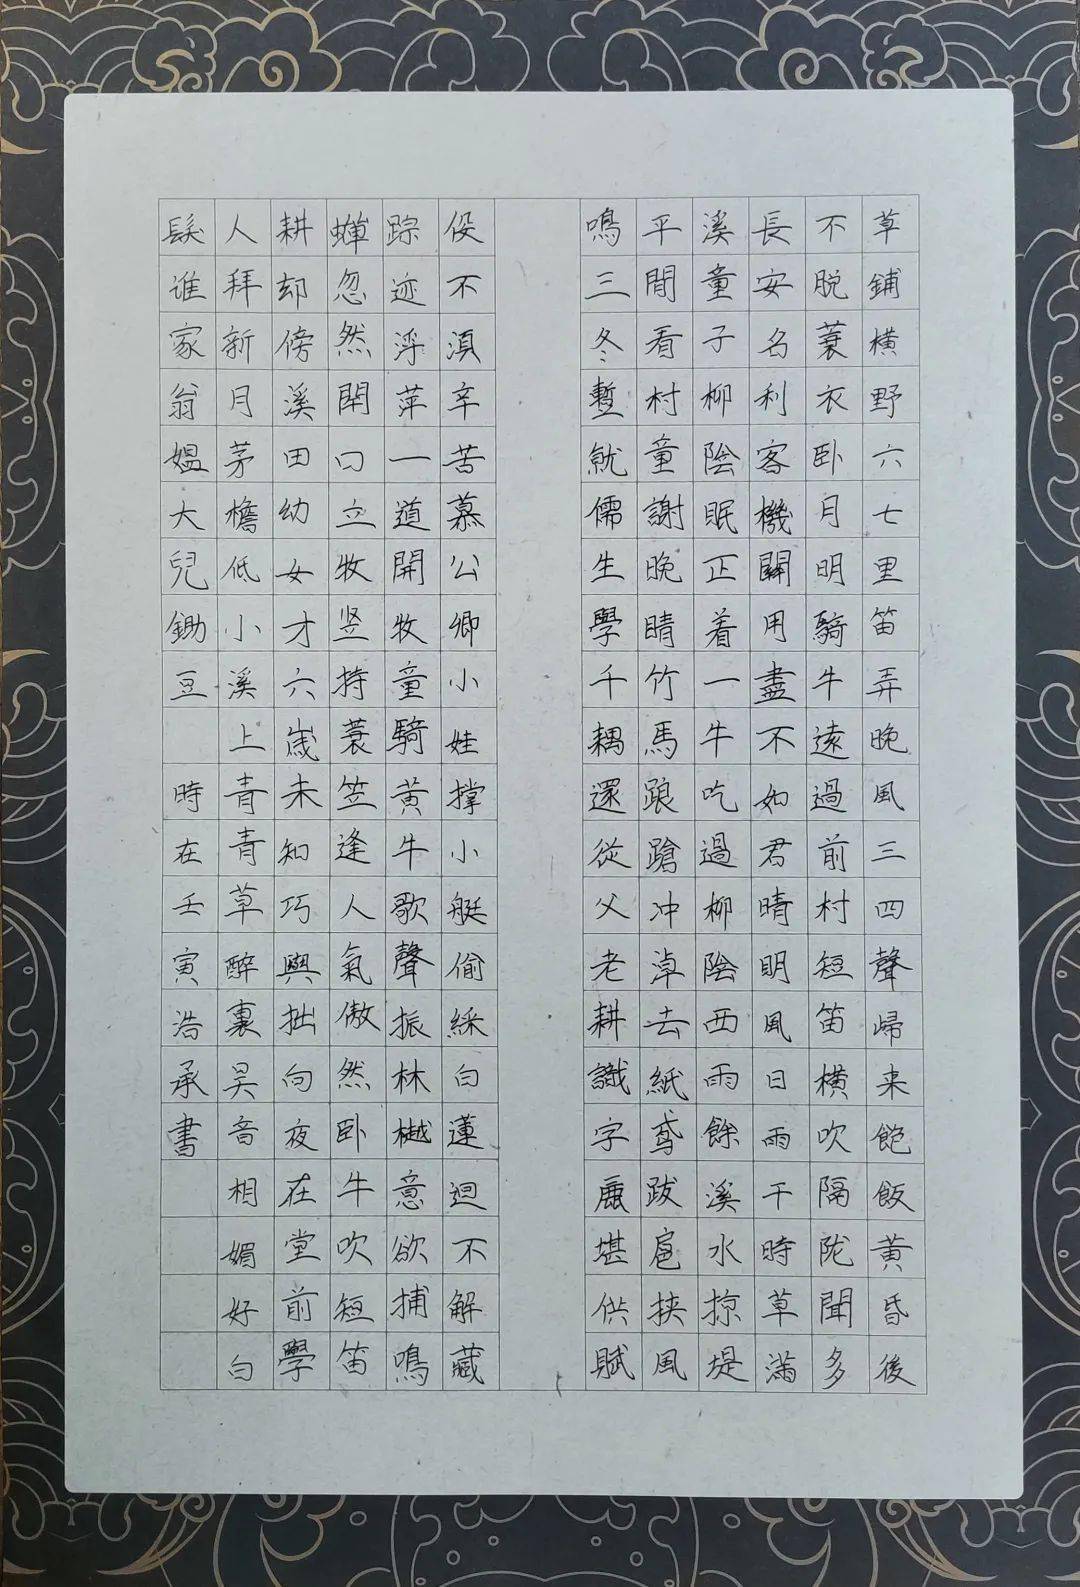 草鋪橫野六七里笛弄晚風三四聲歸来飽飯黃昏後
不脫蓑衣卧月明騎牛遠過前村短笛橫吹隔陇聞多
長安名利客機關用盡不如君晴明風日雨干時草滿
溪童子柳陰眠正着一牛吃過柳陰西雨餘溪水掠堤
平閒看村童謝晚晴竹馬踉蹌冲淖去紙鸢跋扈挟風
鳴三冬暫就儒生學千耦還從父老耕識字麤堪供賦
役不湏辛苦慕公卿小娃撑小艇偷綵白蓮迴不解藏
踪迹浮萍一道開牧童騎黃牛歌聲振林樾意欲捕鳴
蟬忽然閉口立牧竖持蓑笠逢人氣傲然卧牛吹短笛
耕却傍溪田幼女才六歲未知巧與拙向夜在堂前學
人拜新月茅檐低小溪上青青草醉裏吴音相媚好白
髮谁家翁媼大兒鋤豆 時在壬寅浩承書